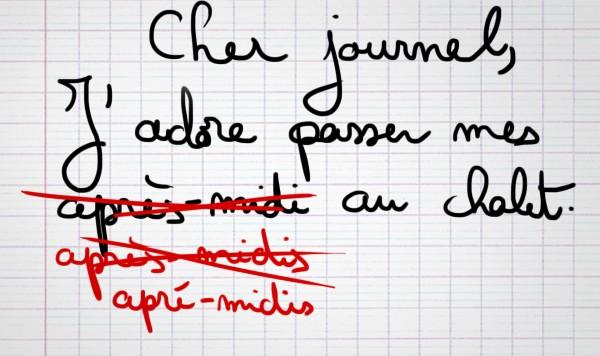 Cher journal,
J'adore passer mes
après-midi au chalet.
après-midis
apré-midis